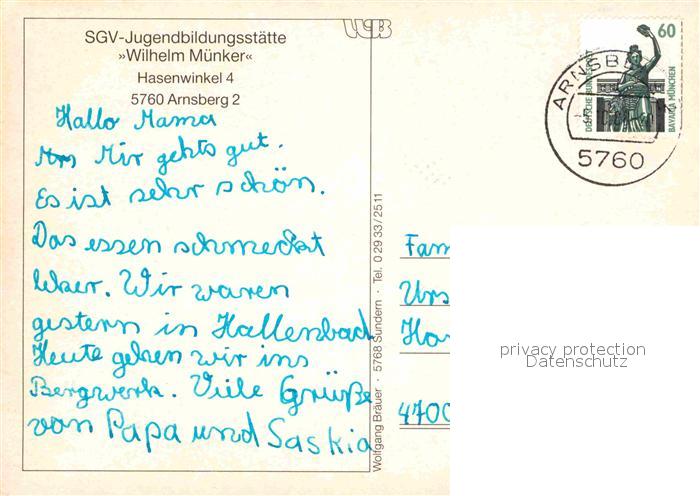 SGV-Jugendbildungsstätte
»Wilhelm Münker«
Hasenwinkel 4
5760 Arnsberg 2
Hallo Mama
Mir gehts gut.
Es ist sehr schön.
Das essen schmeckt
leker. Wir waren
gestern in Hallenbad
Heute gehen wir ins
Bergwerk. Viele Grüße
von Papa und Saskia
Wolfgang Bräuer · 5768 Sundern · Tel. 0 29 33 / 25 11
60
DEUTSCHE BUNDESPOST
BAVARIA MÜNCHEN
ARNSBE
5760
Fam
Urs
4700
privacy protection
Datenschutz